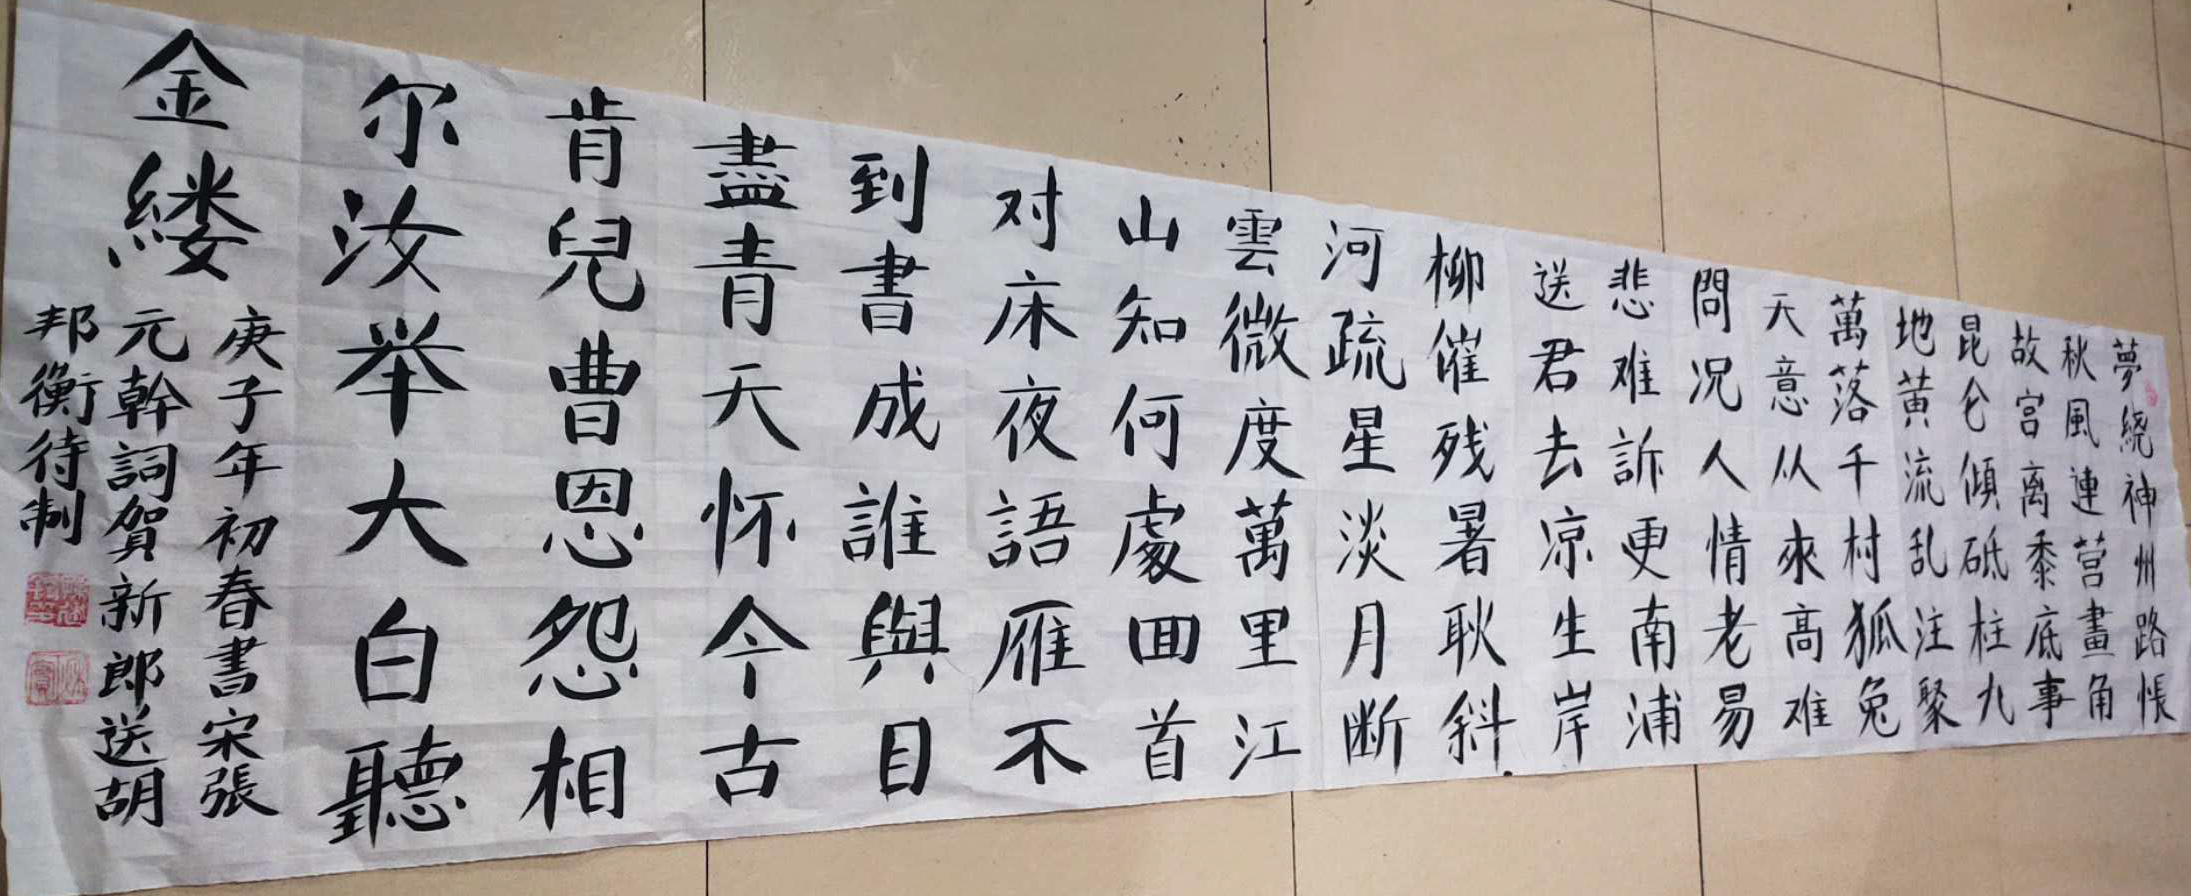 夢繞神州路悵
秋風連营畫角
故宫离黍底事
昆仑傾砥柱九
地黄流乱注聚
萬落千村狐兔
天意从來高难
問况人情老易
悲难訴更南浦
送君去凉生岸
柳催残暑耿斜
河疏星淡月断
雲微度萬里江
山知何處回首
对床夜語雁不
到書成誰與目
盡青天怀今古
肯兒曹恩怨相
尔汝举大白聽
金缕
庚子年初春書宋張
元幹詞賀新郎送胡
邦衡待制